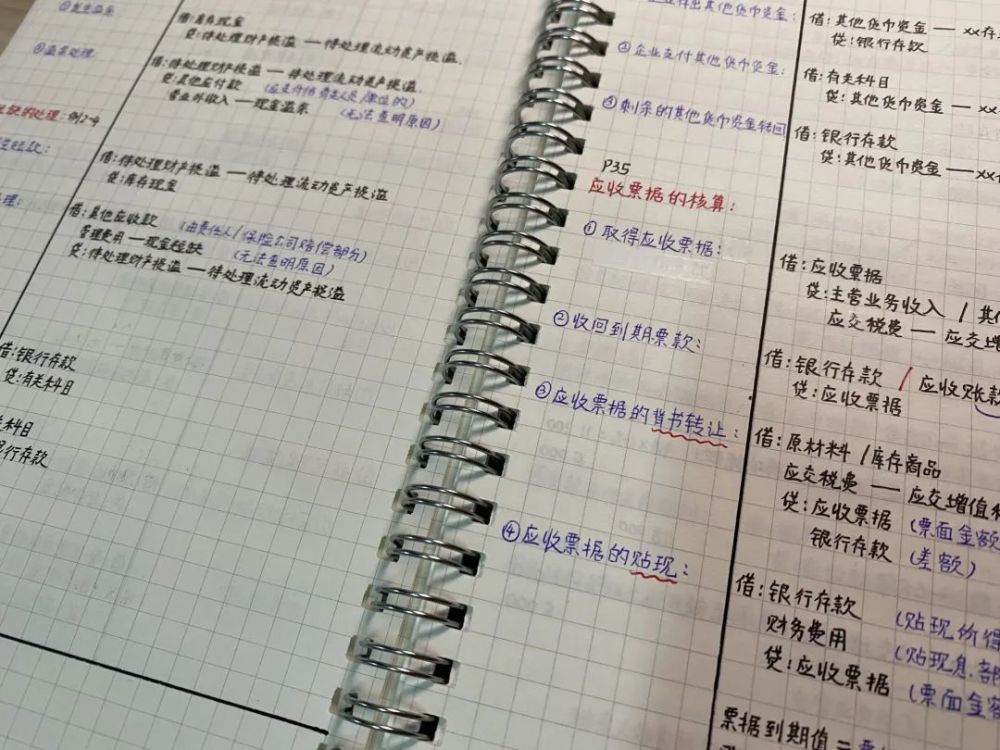 借:库存现金
贷:待处理财产损溢 — 待处理流动资产损溢
借:待处理财产损溢 — 待处理流动资产损溢
贷:其他应付款
营业外收入 — 现金溢余 (无法查明原因)
缺的处理:例2-4
借:待处理财产损溢 — 待处理流动资产损溢
贷:库存现金
借:其他应收款 (由责任人/保险公司赔偿部分)
管理费用 — 现金短缺 (无法查明原因)
贷:待处理财产损溢 — 待处理流动资产损溢
借:银行存款
贷:有关科目
科目
银行存款
其他货币资金:
借:其他货币资金 — xx存
贷:银行存款
②企业支付其他货币资金:
借:有关科目
贷:其他货币资金 — xx
③剩余的其他货币资金转回
借:银行存款
贷:其他货币资金 — xx
P35
应收票据的核算:
①取得应收票据:
借:应收票据
贷:主营业务收入 / 其
应交税费 — 应交增
②收回到期票款:
借:银行存款 / 应收账款
贷:应收票据
③应收票据的背书转让:
借:原材料 /库存商品
应交税费 — 应交增值
贷:应收票据 (票面金额
银行存款 (差额)
④应收票据的贴现:
借:银行存款 (贴现价
财务费用 (贴现息部
贷:应收票据 (票面金
票据到期值 =